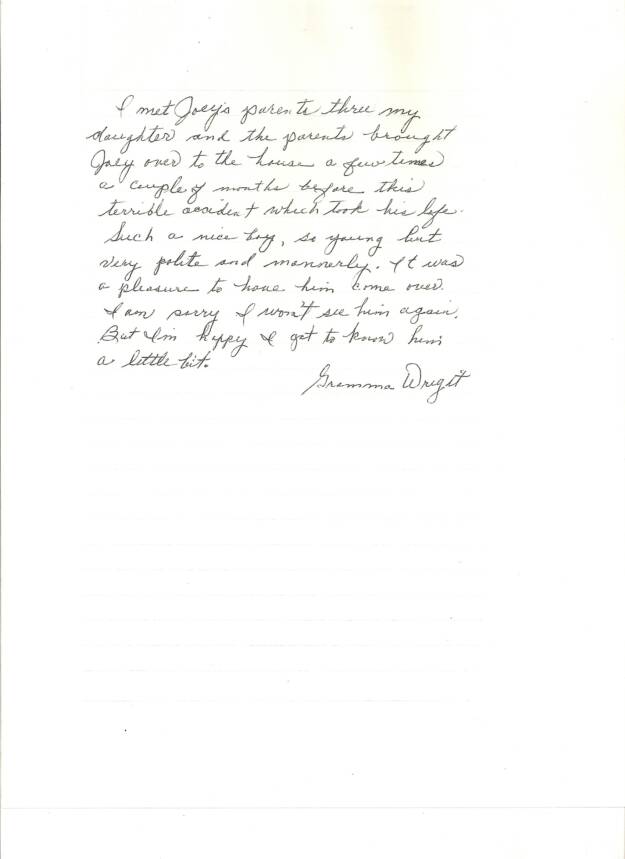 I met Joey's parents three my
daughter and the parents brought
Joey over to the house a few times
a couple of months before this
terrible accident which took his life.
Such a nice boy, so young but
very polite and mannerly. It was
a pleasure to have him come over.
I am sorry I won't see him again.
But I'm happy I got to know him
a little bit.
Gramma Wright